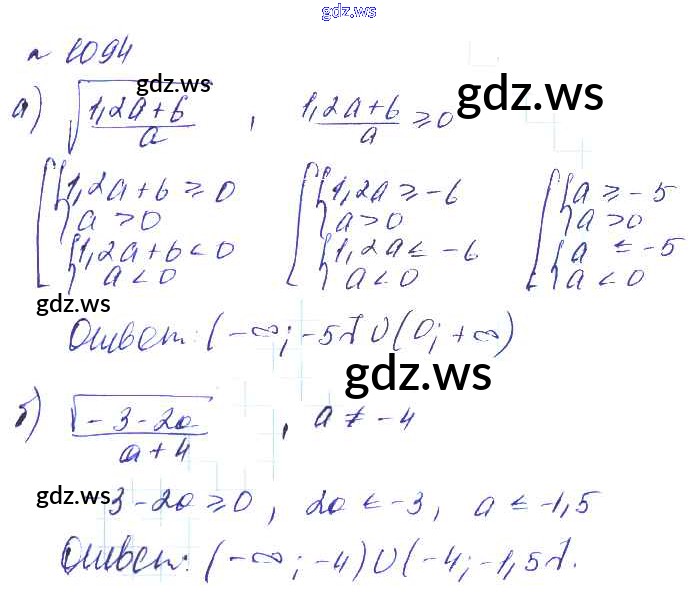 gdz.ws
№ 1094
gdz.ws
gdz.ws
а) √(1,2a+6)/a , (1,2a+6)/a ≥ 0
[ { 1,2a+6 ≥ 0 [ { 1,2a ≥ -6 [ { a ≥ -5
a > 0 a > 0 a > 0
{ 1,2a+6 < 0 { 1,2a ≤ -6 { a ≤ -5
a < 0 a < 0 a < 0
gdz.ws
Ответ: (-∞; -5] ∪ (0; +∞)
gdz.ws
б) √(-3-2a)/(a+4) , a ≠ -4
gdz.ws
-3-2a ≥ 0, 2a ≤ -3, a ≤ -1,5
Ответ: (-∞; -4) ∪ (-4; -1,5].